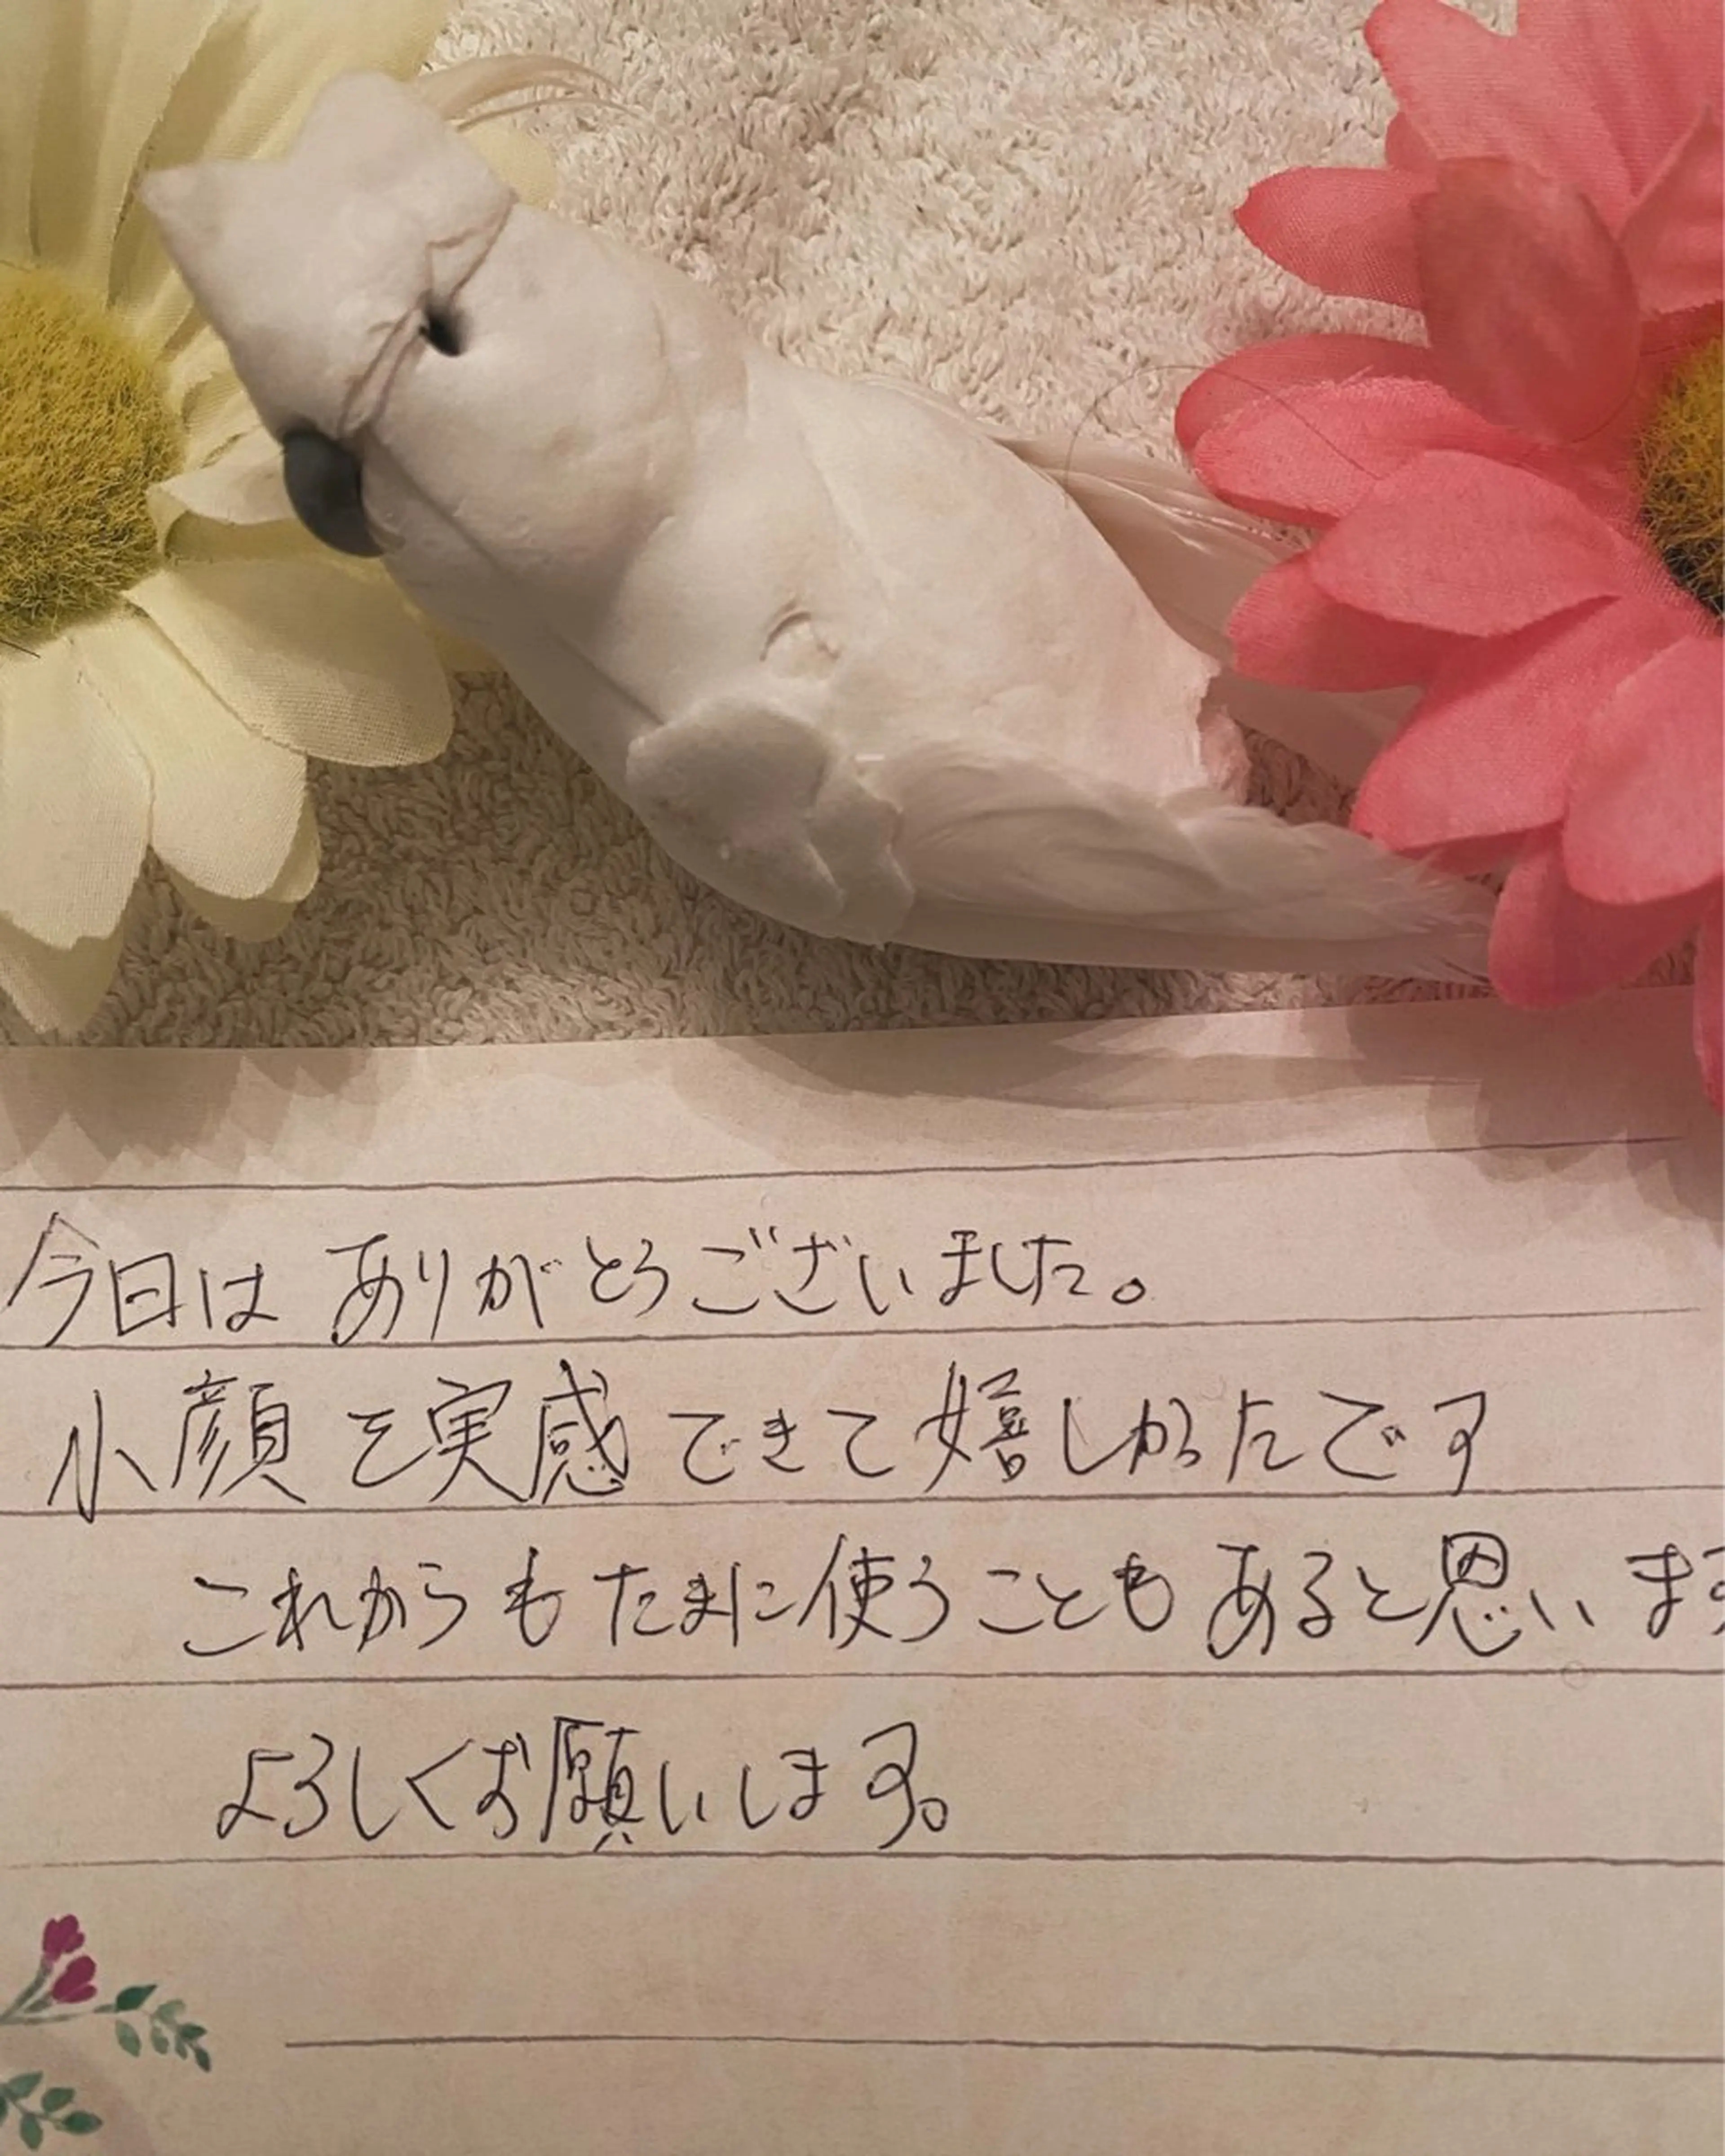 今日は ありがとうございました。
小顔を実感できて嬉しかったです
これからも たまに使うことも あると思います
よろしくお願いします。